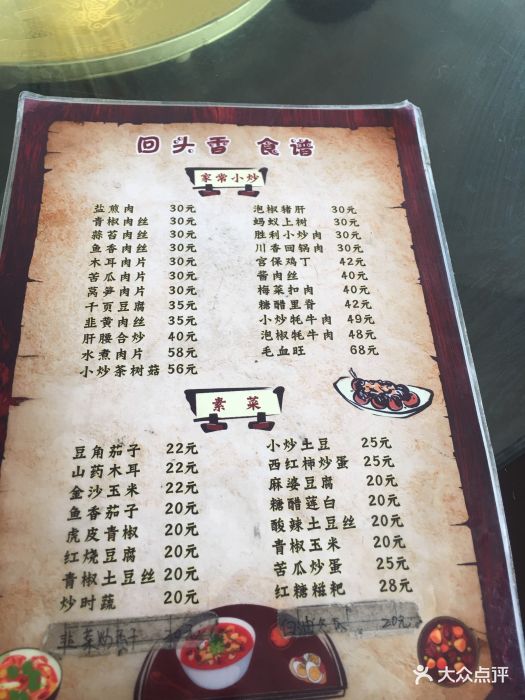 回头香 食谱
家常小炒
盐煎肉 30元
青椒肉丝 30元
蒜苔肉丝 30元
鱼香肉丝 30元
木耳肉片 30元
苦瓜肉片 30元
莴笋肉片 30元
千页豆腐 35元
韭黄肉丝 35元
肝腰合炒 40元
水煮肉片 58元
小炒茶树菇 56元
泡椒猪肝 30元
蚂蚁上树 30元
胜利小炒肉 30元
川香回锅肉 30元
宫保鸡丁 42元
酱肉丝 40元
梅菜扣肉 40元
糖醋里脊 42元
小炒牦牛肉 49元
泡椒牦牛肉 48元
毛血旺 68元
素菜
豆角茄子 22元
山药木耳 22元
金沙玉米 22元
鱼香茄子 20元
虎皮青椒 20元
红烧豆腐 20元
青椒土豆丝 20元
炒时蔬 20元
韭菜 20元
小炒土豆 25元
西红柿炒蛋 25元
麻婆豆腐 20元
糖醋莲白 20元
酸辣土豆丝 20元
青椒玉米 20元
苦瓜炒蛋 20元
红糖糍粑 28元
20元
大众点评